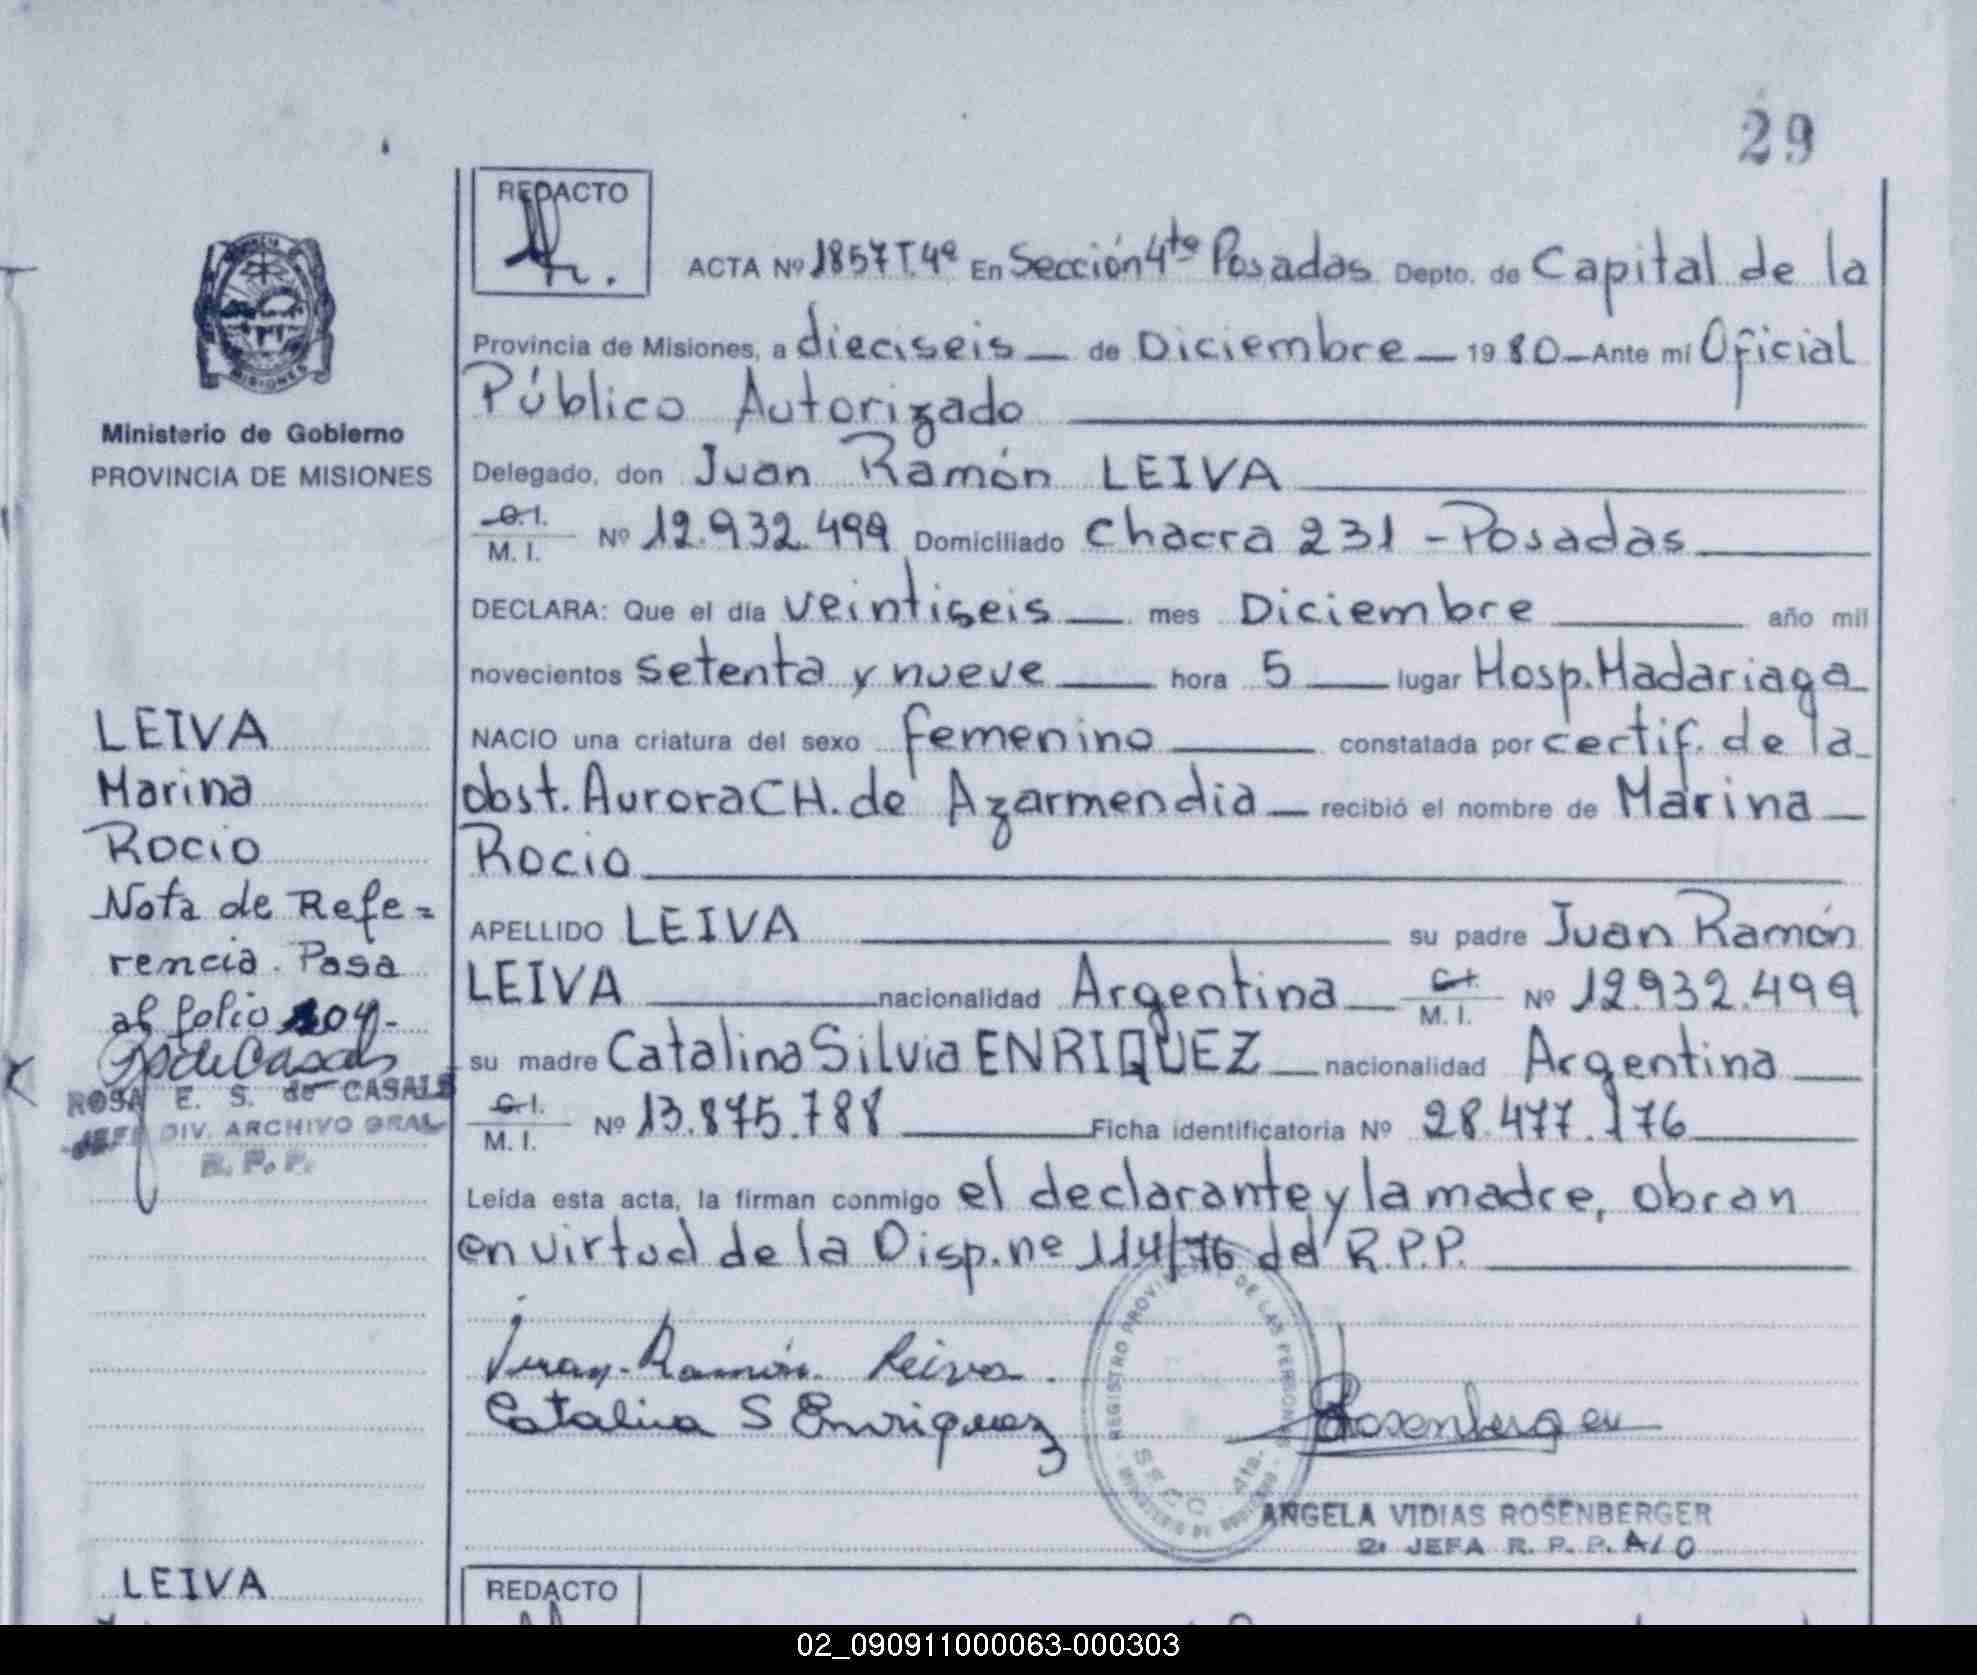 29
REDACTO
ACTA Nº 1857 T.4º En Sección 4ta Posadas Depto. de Capital de la
Provincia de Misiones, a dieciseis de Diciembre 19 80 Ante mí Oficial
Público Autorizado
Delegado, don Juan Ramón LEIVA
C.I.
M. I. Nº 12.932.499 Domiciliado Chacra 231 - Posadas
DECLARA: Que el día veintiseis mes Diciembre año mil
novecientos setenta y nueve hora 5 lugar Hosp. Madariaga
NACIO una criatura del sexo femenino constatada por certif. de la
obst. Aurora CH. de Azarmendia recibió el nombre de Marina
Rocio
APELLIDO LEIVA su padre Juan Ramón
LEIVA nacionalidad Argentina C.I. M. I. Nº 12.932.499
su madre Catalina Silvia ENRIQUEZ nacionalidad Argentina
C.I.
M. I. Nº 13.875.788 Ficha identificatoria Nº 28.477.176
Leída esta acta, la firman conmigo el declarante y la madre, obran
en virtud de la Disp. nº 114/76 del R.P.P.
Juan Ramón Leiva.
Catalina S Enriquez
Rosenberger
REGISTRO PROVINCIAL DE LAS PERSONAS
SECC. 4ta.
MINISTERIO DE GOBIERNO
ANGELA VIDIAS ROSENBERGER
2ª JEFA R. P. P. A/O
MISIONES
Ministerio de Gobierno
PROVINCIA DE MISIONES
LEIVA
Marina
Rocio
Nota de Refe=
rencia. Pasa
al folio 104-
ROSA E. S. de CASALS
JEFE DIV. ARCHIVO GRAL
R. P. P.
LEIVA
REDACTO
02_090911000063-000303